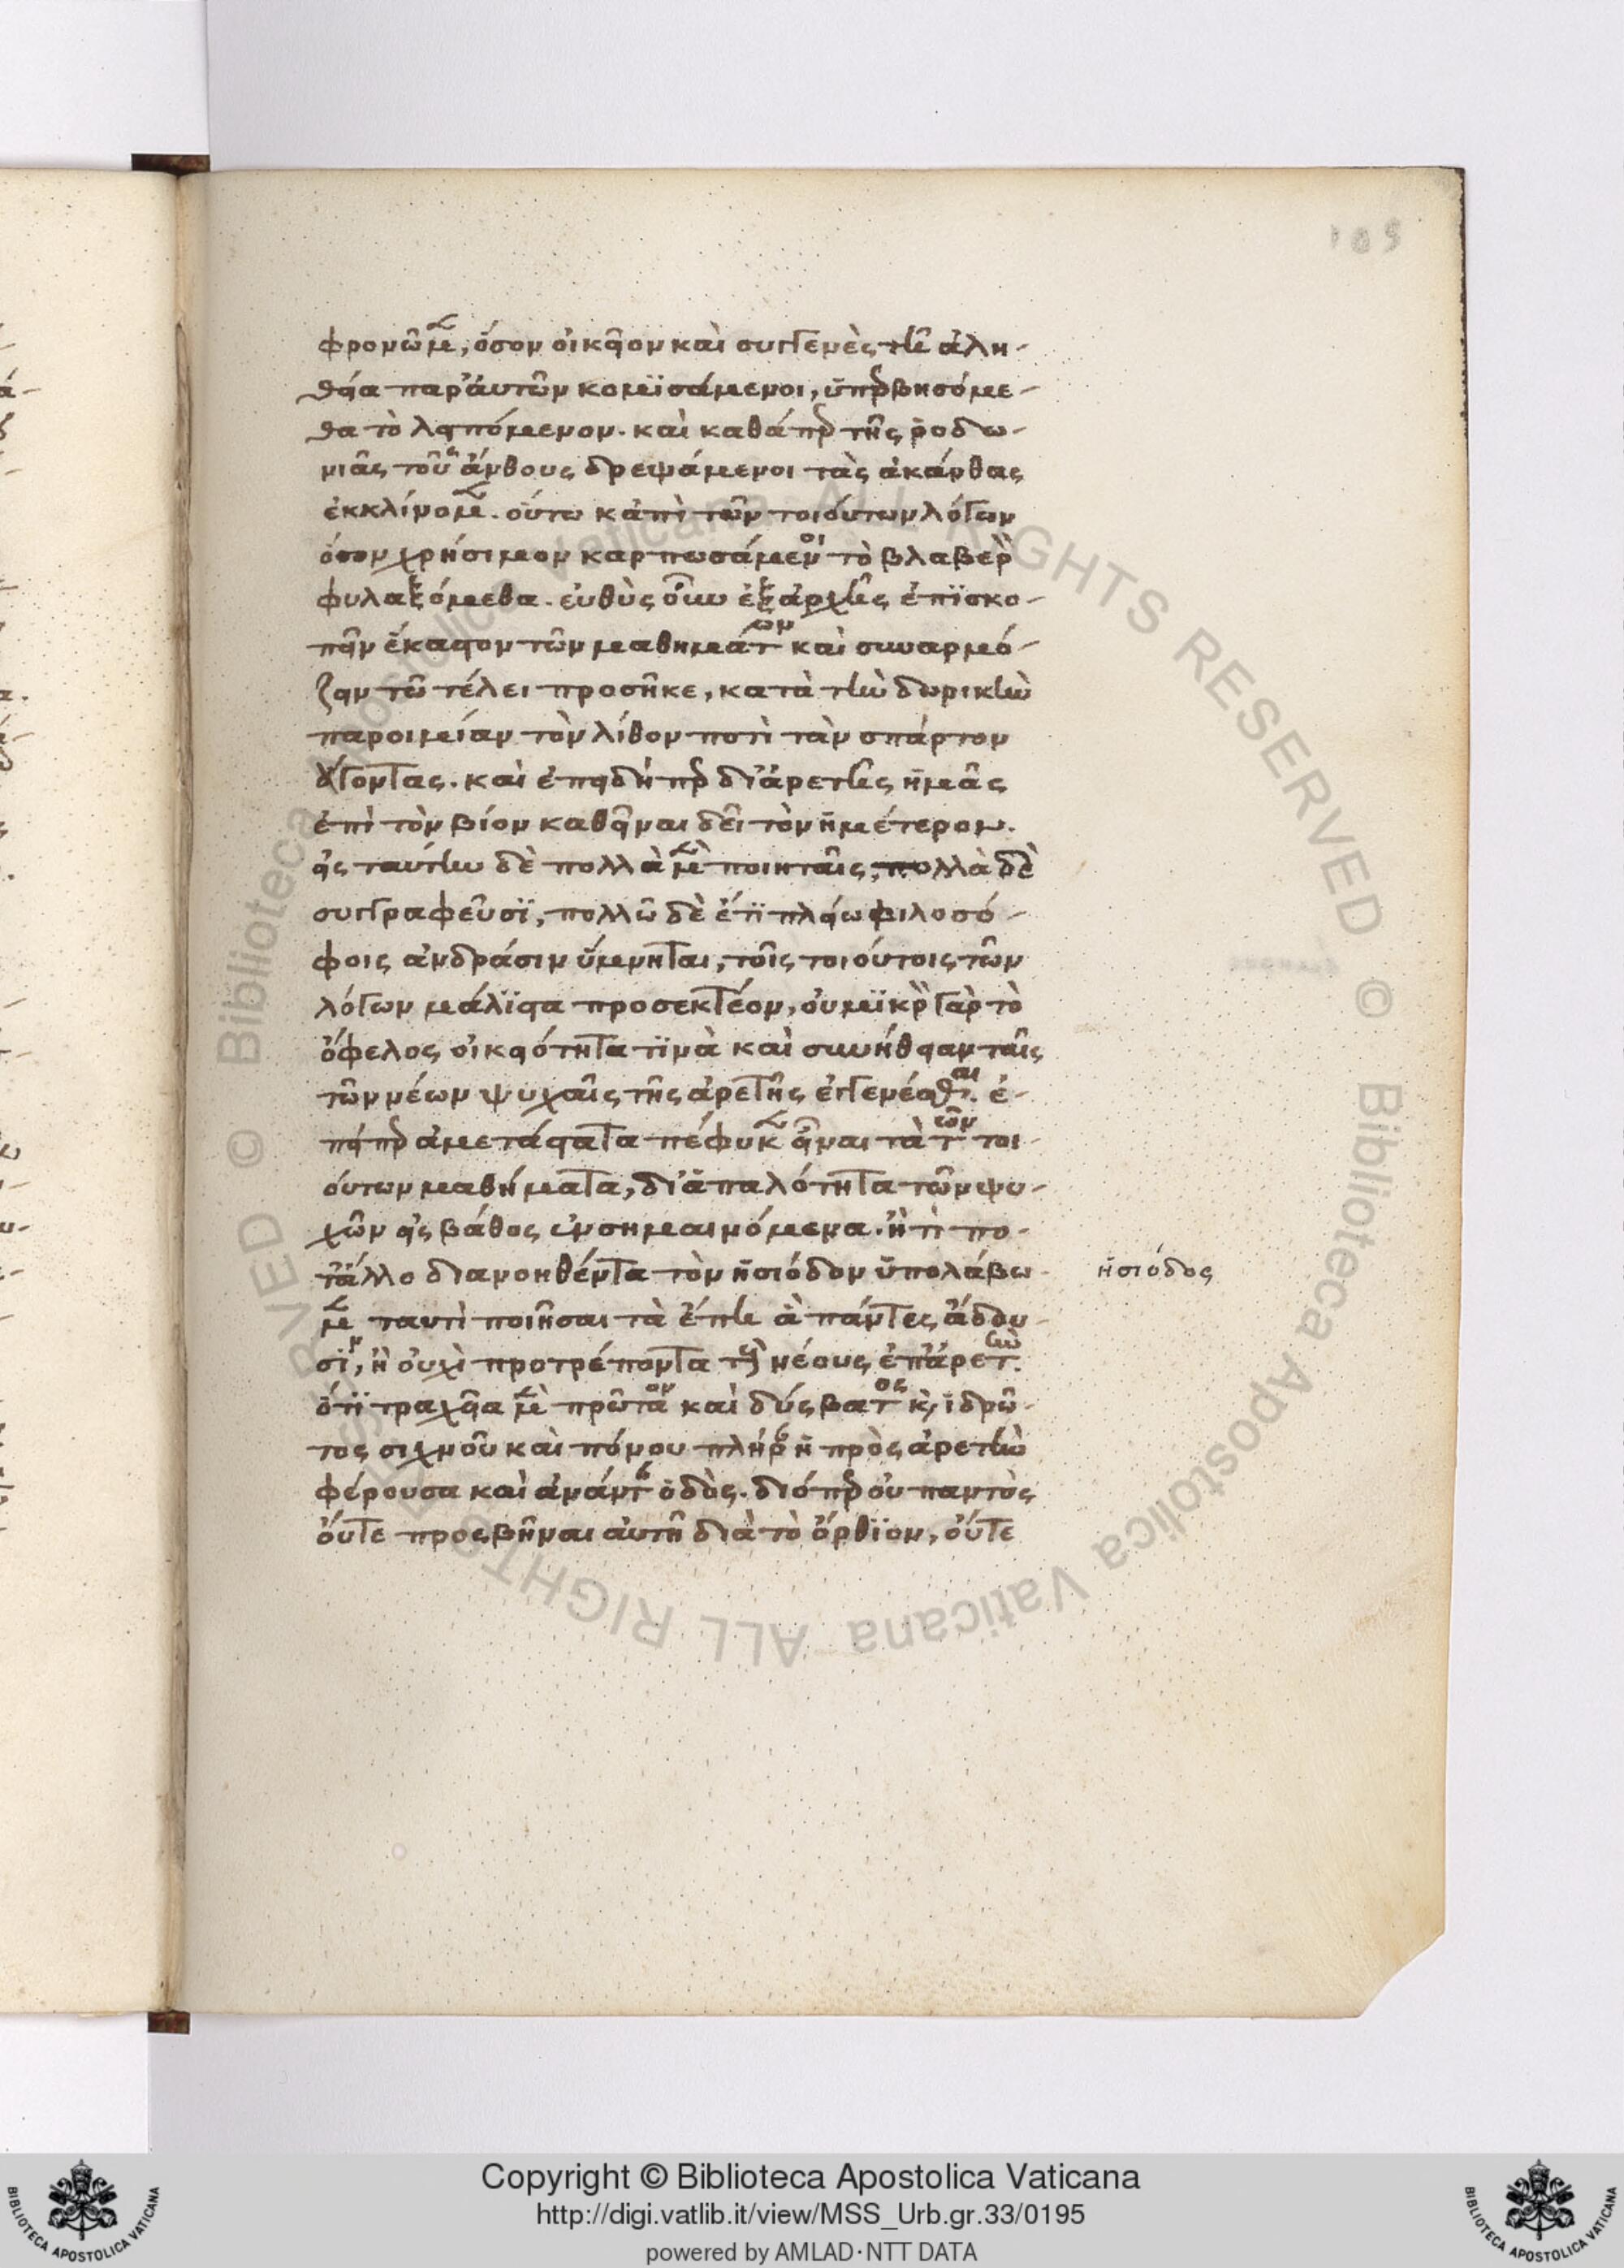 105
φρονῶμεν, ὅσον οἰκεῖον καὶ συγγενὲς τῆ ἀλη-
θεία παρ' ἀυτῶν κομϊσάμενοι, ὑπερβησόμε-
θα τὸ λειπόμενον. καὶ καθάπερ τῆς ῥοδω-
νιᾶς τοῦ ἄνθους δρεψάμενοι τὰς ἀκάνθας
ἐκκλίνομεν. οὕτω κἀπὶ τῶν τοιόυτων λόγων
ὅσον χρήσιμον καρπωσάμενοι τὸ βλαβερὸν
φυλαξόμεθα. ευθὺς οὖν ἐξ ἀρχῆς ἐπϊσκο-
πεῖν ἕκαστον τῶν μαθημάτων καὶ συναρμό-
ζειν τῶ τέλει προσῆκε, κατὰ τὴν δωρικὴν
παροιμίαν τὸν λίθον ποτὶ τὰν σπάρτον
ἄγοντας. καὶ ἐπειδήπερ δι' ἀρετῆς ἡμᾶς
ἐπὶ τὸν βίον καθεῖναι δεῖ τὸν ἡμέτερον.
εἰς ταύτην δὲ πολλὰ μὲν ποιηταῖς, πολλὰ δὲ
συγγραφεῦσϊ, πολλῶ δὲ ἔτϊ πλείω φιλοσό-
φοις ἀνδράσιν ὕμνηται, τοῖς τοιούτοις τῶν
λόγων μάλϊστα προσεκτέον, οὐ μϊκρὸν γὰρ τὸ
ὄφελος οἰκειότητα τϊνὰ καὶ συνήθειαν ταῖς
τῶν νέων ψυχαῖς τῆς ἀρετῆς ἐγγενέσθαι. ἐ-
πείπερ ἀμετάστατα πέφυκεν εἶναι τὰ τῶν τοι-
ούτων μαθήματα, δι' ἁπαλότητα τῶν ψυ-
χῶν εἰς βάθος ἐνσημαινόμενα. ἢ τί πο-
τ' ἄλλο διανοηθέντα τὸν ἡσιόδον ὑπολάβω-
μεν ταυτὶ ποιῆσαι τὰ ἔπη ἃ πάντες ἄδου-
σϊν, ἢ οὐχὶ προτρέποντα τοὺς νέους ἐπ' ἀρετήν.
ὅτϊ τραχεῖα μὲν πρῶτον καὶ δύσβατος καὶ ἱδρῶ-
τος συχνοῦ καὶ πόνου πλήρης ἡ πρὸς ἀρετὴν
φέρουσα καὶ ἀνάντης ὁδὸς. διόπερ οὐ παντὸς
οὔτε προσβῆναι ἀυτῆ διὰ τὸ ὄρθϊον, οὔτε
ἡσιόδος
© Biblioteca Apostolica Vaticana ALL RIGHTS RESERVED © Biblioteca Apostolica Vaticana ALL RIGHTS RESERVED
BIBLIOTECA APOSTOLICA VATICANA
Copyright © Biblioteca Apostolica Vaticana
http://digi.vatlib.it/view/MSS_Urb.gr.33/0195
powered by AMLAD·NTT DATA
BIBLIOTECA APOSTOLICA VATICANA